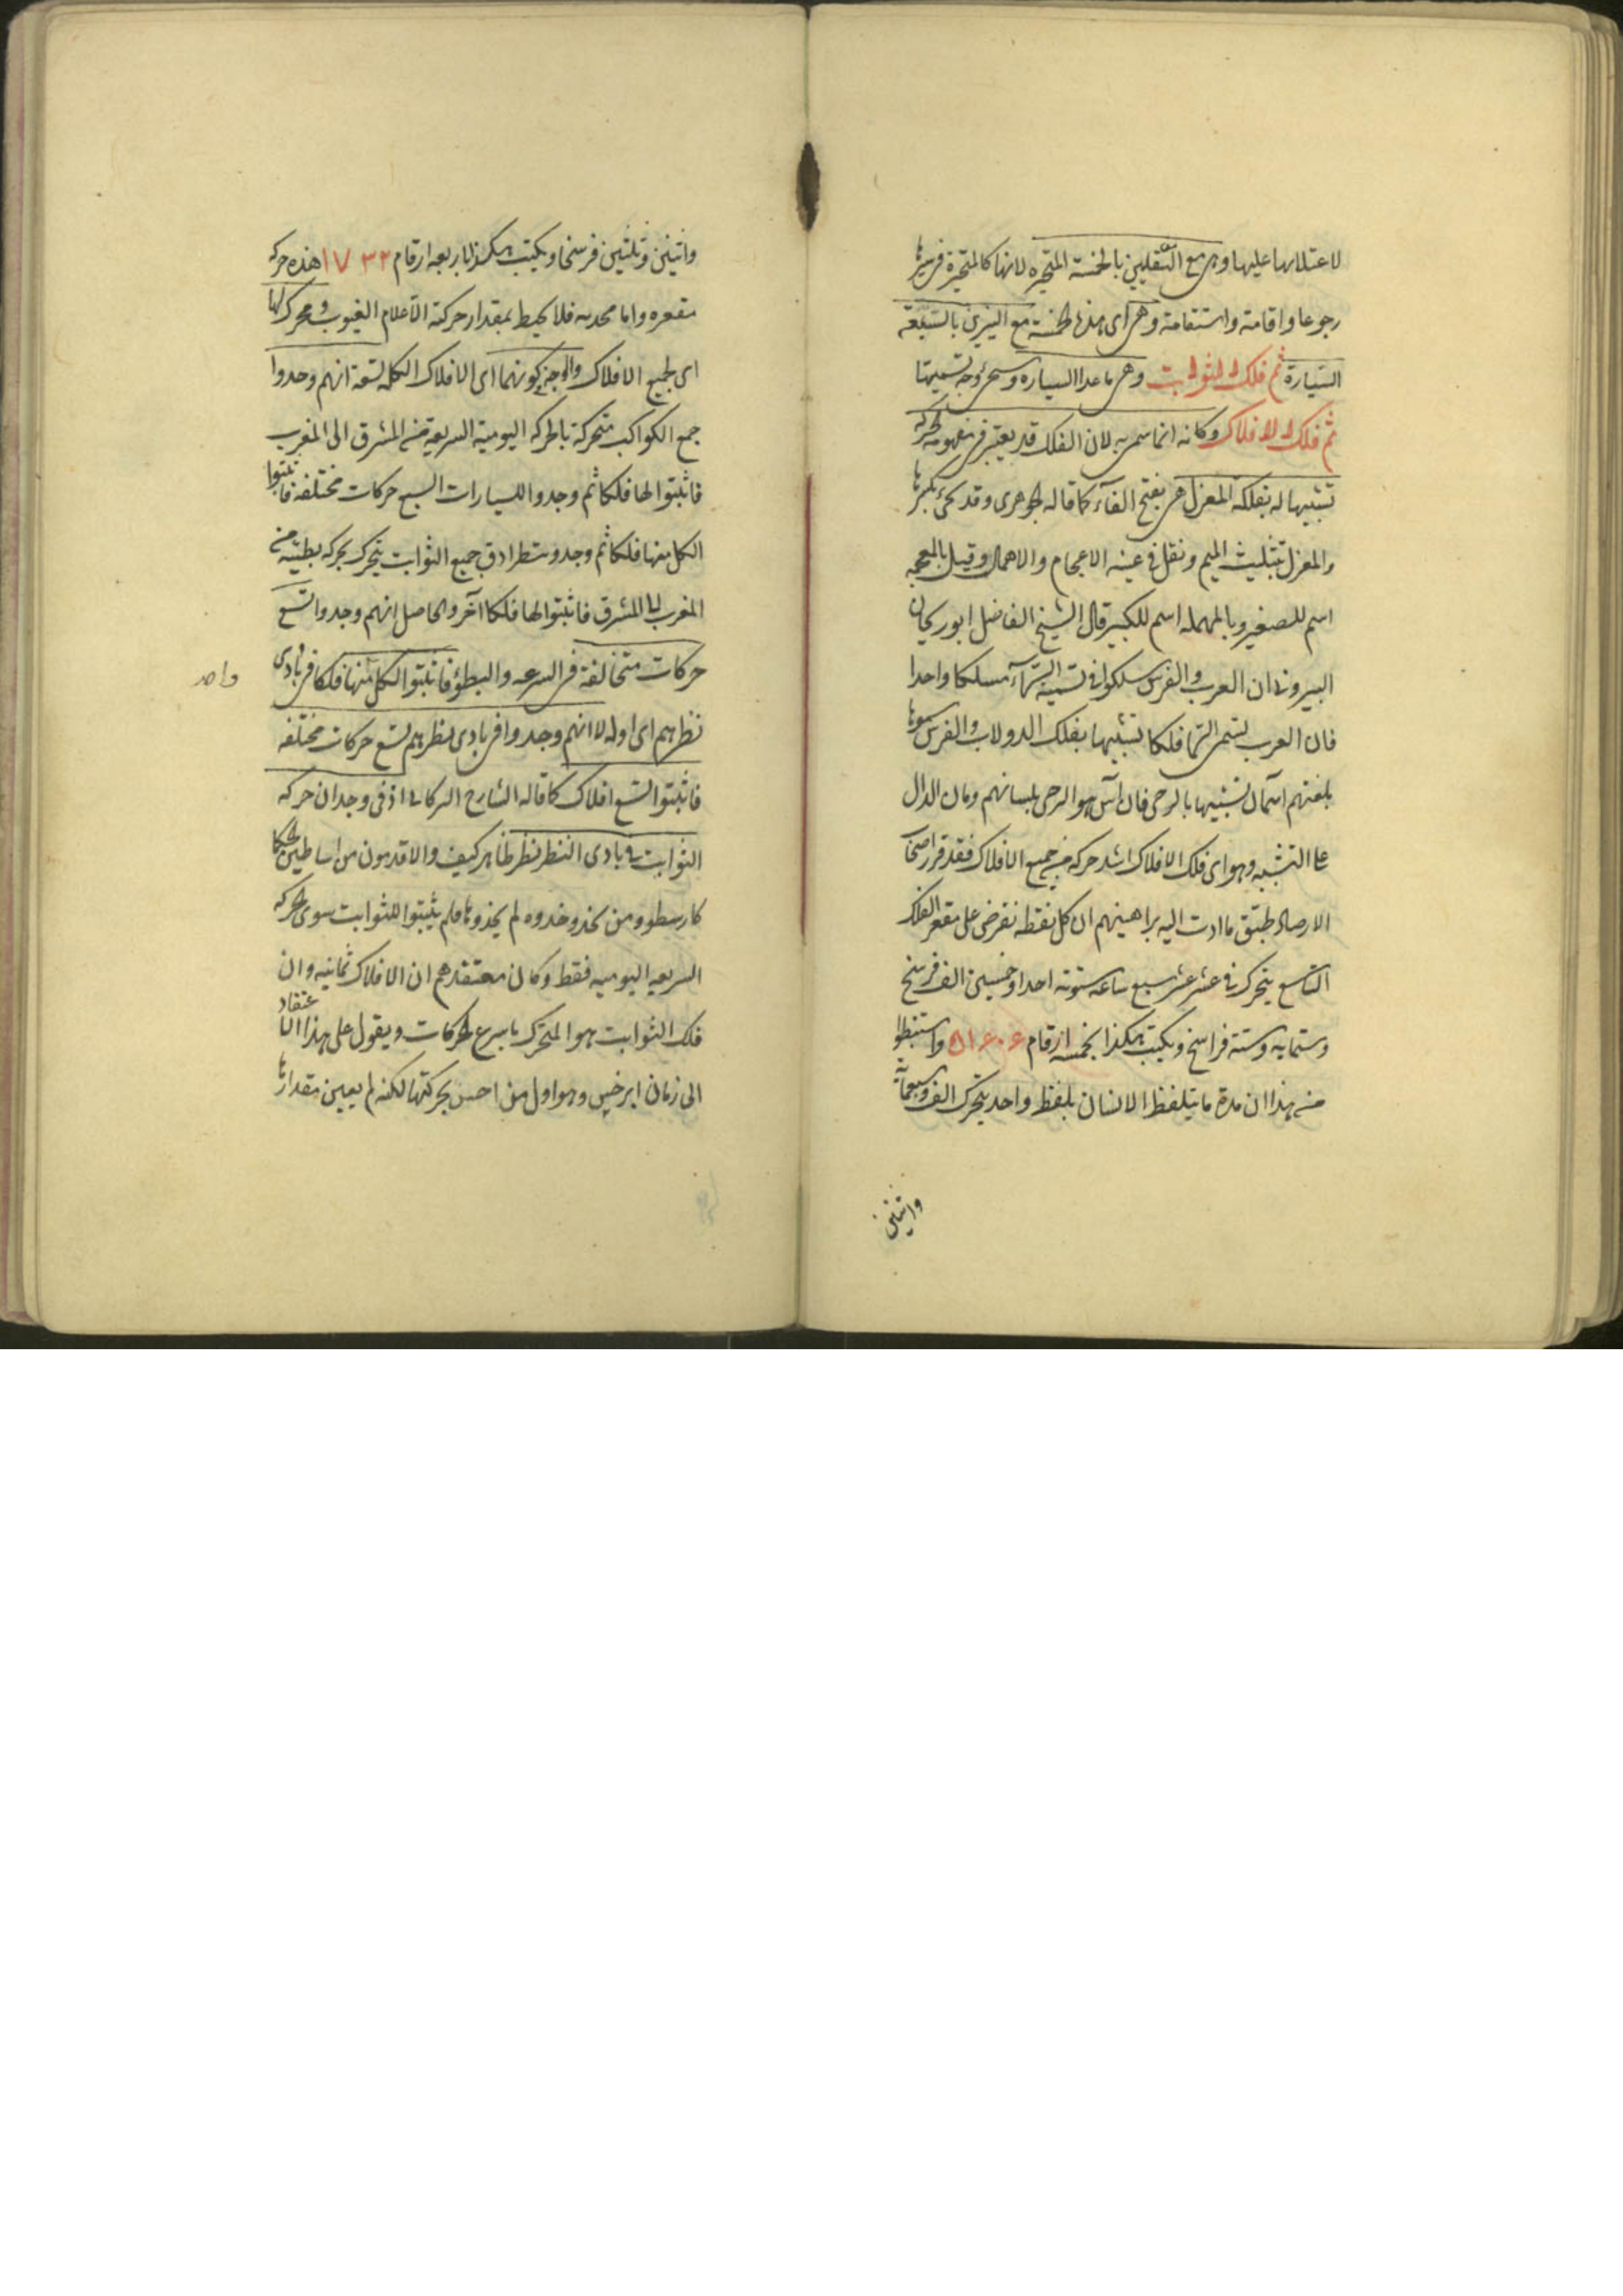 لاعتلائها عليها وهى مع السفليين بالخمسة المتحيره لانها كالمتحيرة فى سيرها
رجوعا واقامة واستقامة وهى اى هذه الخمسة مع النيرين بالسبعة
السيارة ثم فلك الثوابت وهى ماعدا السياره وسيجئ وجه تسميتها
ثم فلك الافلاك وكانه انما سمى به لان الفلك قد يعتبر فى مفهومه الحركة
تشبيها له بفلكة المغزل هى بفتح الفآء كما قاله الجوهرى وقد تحكى بكسرها
والمغزل بتثليث الميم ونقل فى عينه الاعجام والاهمال وقيل بالمعجمه
اسم للصغير وبالمهمله اسم للكبير قال الشيخ الفاضل ابو ريحان
البيرونى ان العرب والفرس سلكوا فى تسمية السمآء مسلكا واحدا
فان العرب تسمى السما فلكا تشبيها بفلك الدولاب والفرس سموها
بلغتهم آسمان تشبيها بالرحى فان آس هو الرحى بلسانهم ومان الدال
على التشبيه وهو اى فلك الافلاك اشد حركه من جميع الافلاك فقد قرر اصحاب
الارصاد طبق ما ادت اليه براهينهم ان كل نقطه تفرض على مقعر الفلك
التاسع يتحرك فى عشر عشر سبع ساعه ستوته احدا وخمسين الف فرسخ
وستمايه وستة فراسخ ويكتب هكذا بخمسه ارقام ٥١٦٠٦ واستنبطوا
من هذا ان مدة ما يتلفظ الانسان بلفظ واحد يتحرك الف وسبعمائة
واثنين
واثنين وثلثين فرسخا ويكتب هكذا باربعه ارقام ١٧٣٢ هذه حركه
مقعره واما محدبه فلا يحيط بمقدار حركته الا علام الغيوب ومحرك لها
اى لجميع الافلاك والوجه فى كونهما اى الافلاك الكليه تسعة انهم وجدوا
جمع الكواكب متحركة بالحركه اليومية السريعة من المشرق الى المغرب
فاثبتوا لها فلكا ثم وجدوا للسيارات السبع حركات مختلفه فاثبتوا
لكل منها فلكا ثم وجدوا جميع الثوابت يتحرك بحركه بطيئه من
المغرب الى المشرق فاثبتوا لها فلكا آخر والحاصل انهم وجدوا تسع
حركات متخالفة فى السرعه والبطؤ فاثبتوا لكل منها فلكا فى بادى
واحد
نظرهم اى اوله لا انهم وجدوا فى بادى نظرهم تسع حركات مختلفه
فاثبتوا تسع افلاك كما قاله الشارح التركانى اذ فى وجدان حركه
الثوابت فى بادى النظر نظر ظاهر كيف والاقدمون من اساطين الحكما
كارسطو ومن يحذو حذوه لم يجدوها فلم يثبتوا للثوابت سوى الحركه
السريعه اليوميه فقط وكان معتقدهم ان الافلاك ثمانيه وان
فلك الثوابت هو المتحرك باسرع الحركات ويقول على هذا الاعتقاد
الى زمان ابرخس وهو اول من احس بحركتها لكنه لم يعين مقدارها